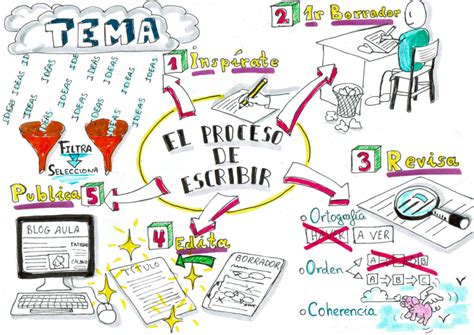 TEMA
IDEAS IDEAS IDEAS IDEAS IDEAS IDEAS
IDEAS IDEAS IDEAS IDEAS IDEAS
FILTRA
SELECCIONA
1 Inspírate
2 1r Borrador
EL PROCESO
DE
ESCRIBIR
3 Revisa
Ortografía
HAVER A VER
Orden
A B C
A B C
Coherencia
4 Edita
TÍTULO
BORRADOR
Publica 5
BLOG AULA